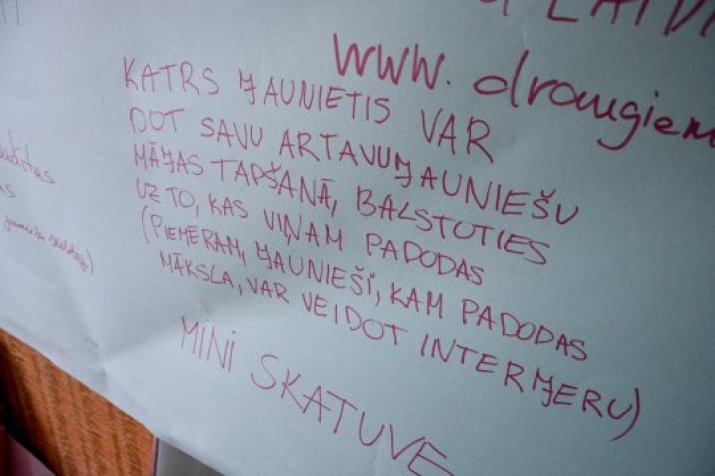 LATV
www.draugiem
KATRS JAUNIETIS VAR
DOT SAVU ARTAVU JAUNIEŠU
MĀJAS TAPŠANĀ, BALSTOTIES
UZ TO, KAS VIŅAM PADODAS
(PIEMĒRAM, JAUNIEŠI, KAM PADODAS
MĀKSLA, VAR VEIDOT INTERJERU)
MINI SKATUVE